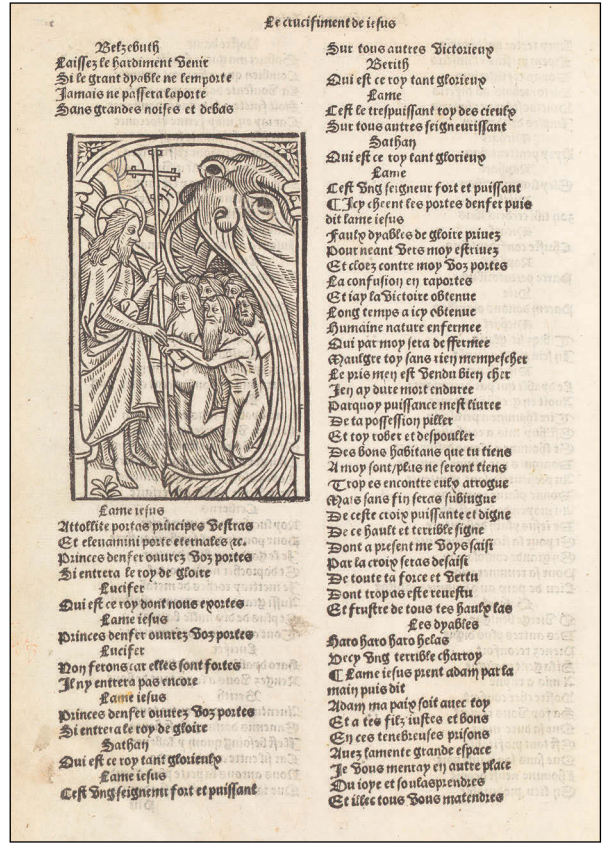 Le crucifiment de iesus
Belzebuth
Laissez le hardiment venir
Si le grant dyable ne lemporte
Jamais ne passera laporte
Sans grandes noises et debas
Lame iesus
Attollite portas principes vestras
Et eleuamini porte eternales ⁊c.
Princes denfer ouurez voz portes
Si entrera le roy de gloire
Lucifer
Qui est ce roy dont nous exportes
Lame iesus
Princes denfer ouurez voz portes
Lucifer
Non ferons car elles sont fortes
Il ny entrera pas encore
Lame iesus
Princes denfer ouurez voz portes
Si entrera le roy de gloire
Sathan
Qui est ce roy tant glorieux
Lame iesus
Cest vng seigneur fort et puissant
Sur tous autres victorieux
Berith
Qui est ce roy tant glorieux
Lame
Cest le trespuissant roy des cieulx
Sur tous autres seigneurissant
Sathan
Qui est ce roy tant glorieux
Lame
Cest vng seigneur fort et puissant
¶ Icy cheent les portes denfer puis
dit lame iesus
Faulx dyables de gloire priuez
Pour neant vers moy estriuez
Et cloez contre moy voz portes
La confusion en raportes
Et iay la victoire obtenue
Long temps a icy obtenue
Humaine nature enfermee
Qui par moy sera deffermee
Maulgre toy sans rien mempescher
Le pris men est vendu bien cher
Jen ay dure mort enduree
Parquoy puissance mest liuree
De ta possession piller
Et toy rober et despouller
Des bons habitans que tu tiens
A moy sont/plus ne seront tiens
Trop es encontre eulx arrogue
Mais sans fin seras subiugue
De ceste croix puissante et digne
De ce hault et terrible signe
Dont a present me voys saisi
Par la croix seras desaisi
De toute ta force et vertu
Dont trop as este reuestu
Et frustre de tous tes haulx las
Les dyables
Haro haro haro helas
Vecy vng terrible charroy
¶ Lame iesus prent adam par la
main puis dit
Adam ma paix soit auec toy
Et a tes filz iustes et bons
En ces tenebreuses prisons
Auez lamente grande espace
Je vous menray en autre place
Ou ioye et soulasprendres
Et illec tous vous matendres